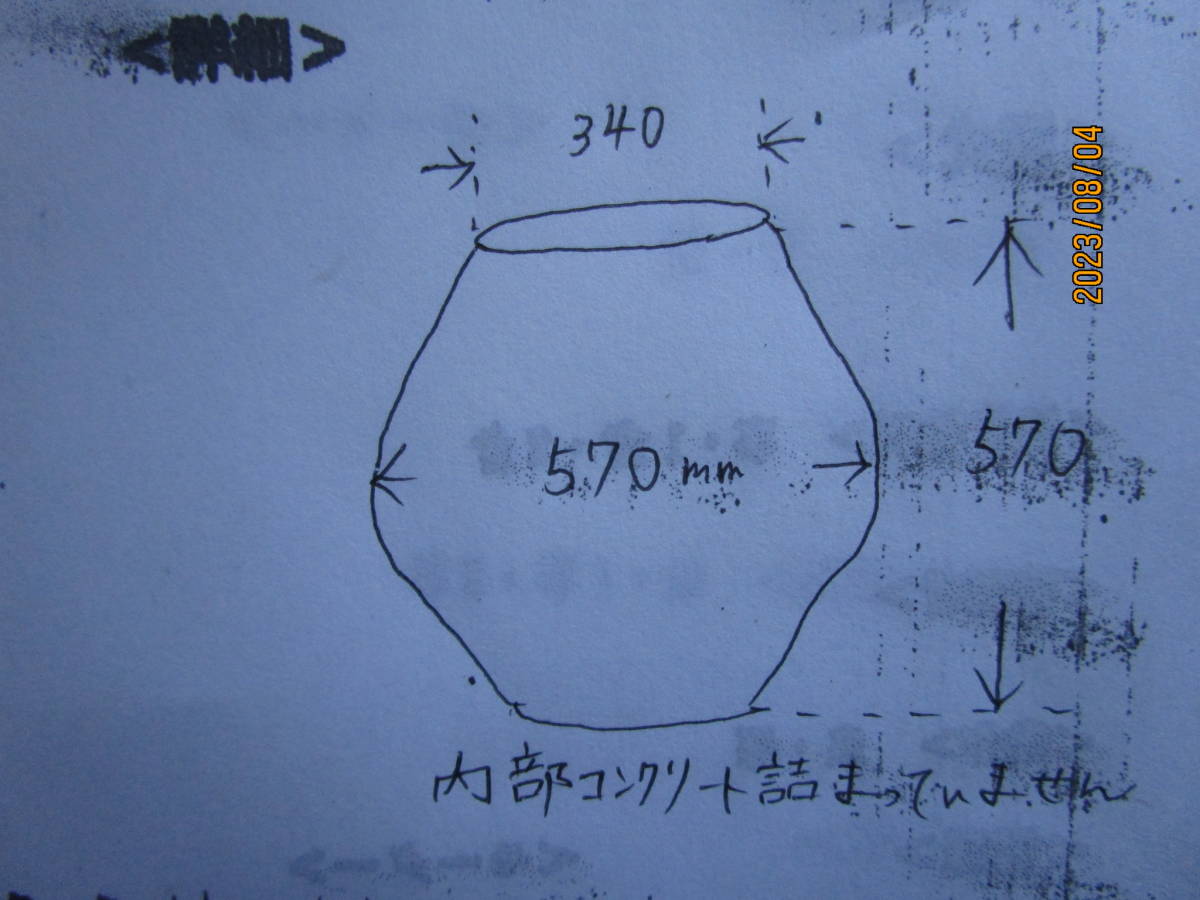 <詳細>
340
2023/08/04
570mm
570
内部コンクリート詰まっていません